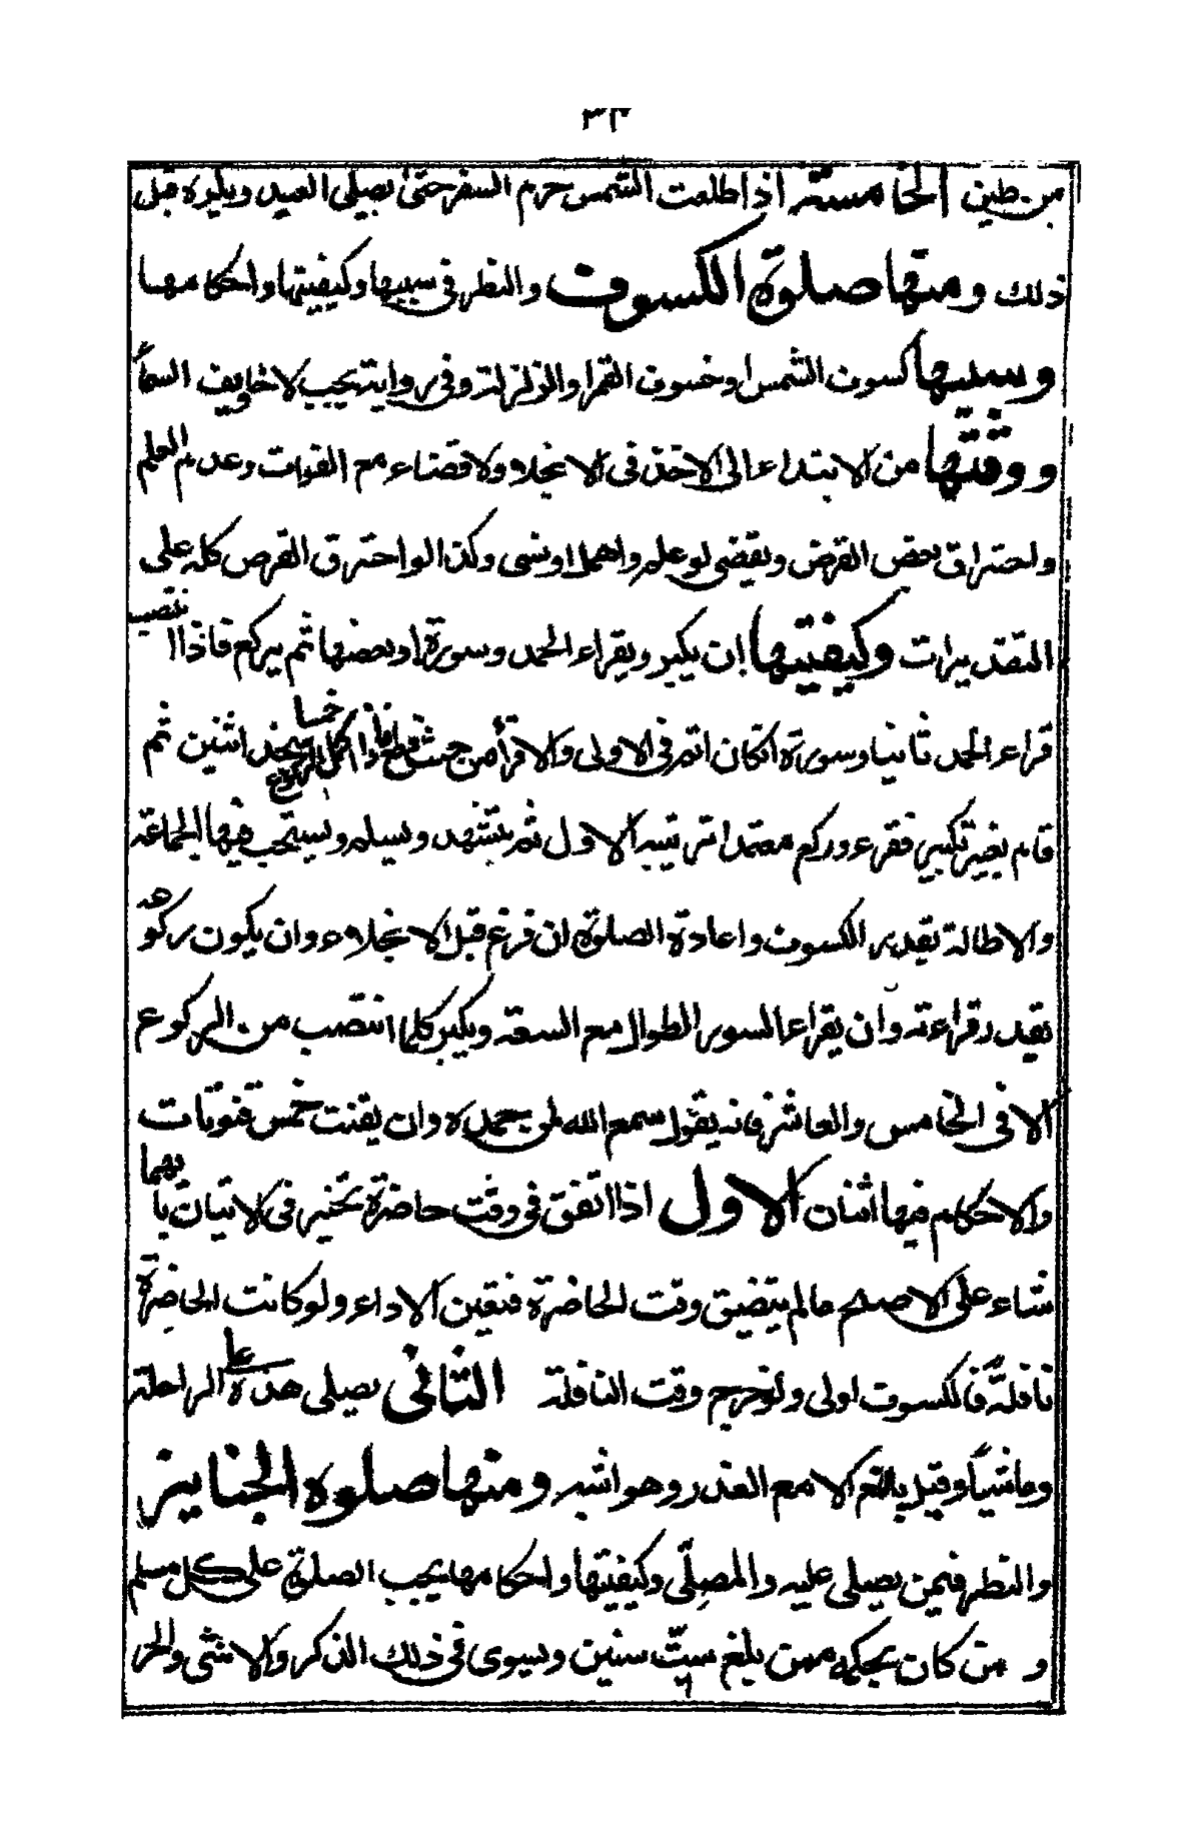 ٣٢
من طين الخامسة اذا طلعت الشمس حرم السفر حتى يصلى العيد ويكره قبل
ذلك ومنها صلوة الكسوف والنظر فى سببها وكيفيتها واحكامها
وسببها كسوف الشمس او خسوف القمر او الزلزلة وفى رواية يجب لاخاويف السماء
ووقتها من الابتداء الى الاخذ فى الانجلاء ولا قضاء مع الفوات وعدم العلم
واحتراق بعض القرص ويقضى لو علم واهمل او نسى وكذا لو احترق القرص كله على
التقديرات وكيفيتها ان يكبر ويقراء الحمد وسورة او بعضها ثم يركع فاذا انتصب
قراء الحمد ثانيا وسورة ان كان اتم فى الاولى والا قرأ من حيث قطع فاذا اكمل خمسا سجد اثنين ثم
قام بغير تكبير فقرء وركع معتمدا ترتيبه الاول ثم يتشهد ويسلم ويستحب فيها الجماعة
والاطالة بقدر الكسوف واعادة الصلوة ان فرغ قبل الانجلاء وان يكون ركوعه
بقدر قراءته وان يقراء السور الطوال مع السعة ويكبر كلما انتصب من الركوع
الا فى الخامس والعاشر فانه يقول سمع الله لمن حمده وان يقنت خمس قنوتات
والاحكام فيها اثنان الاول اذا اتفق فى وقت حاضرة تخير فى الاتيان بايهما
شاء على الاصح مالم يتضيق وقت الحاضرة فتعين الاداء ولو كانت الحاضرة
نافلة فالكسوف اولى ولو خرج وقت النافلة الثانى يصلى هذه على الراحلة
وماشيا وقيل بالمنع الا مع العذر وهو اشبه ومنها صلوة الجنايز
والنظر فيمن يصلى عليه والمصلى وكيفيتها واحكامها يجب الصلوة على كل مسلم
و من كان بحكمه ممن بلغ ست سنين ويسوى فى ذلك الذكر والانثى والحر
٦